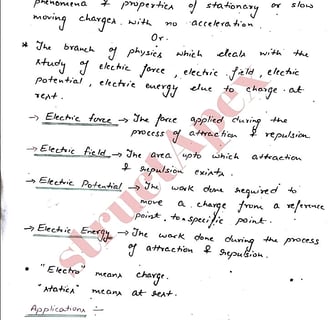 phenomena & properties of stationary or slow
moving charges with no acceleration.
Or.
* The branch of physics which deals with the
study of electric force, electric field, electric
potential, electric energy due to charge at
rest.
→ Electric force → The force applied during the
process of attraction & repulsion.
→ Electric field → The area upto which attraction
& repulsion exists.
→ Electric Potential → The work done required to
move a charge from a reference
point to specific point.
→ Electric Energy → The work done during the process
of attraction & repulsion.
• "Electro" means charge.
"statics" means at rest.
Applications :-